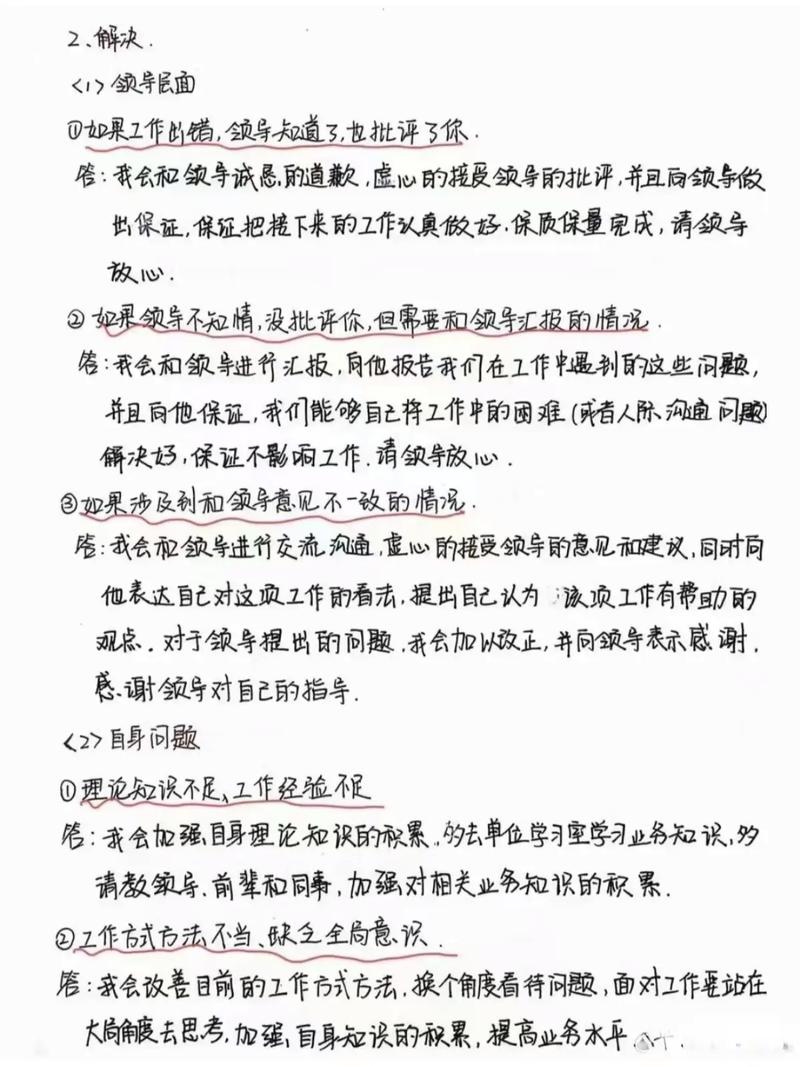 2、解决.
<1>领导层面
①如果工作出错,领导知道了,也批评了你.
答:我会和领导诚恳的道歉,虚心的接受领导的批评,并且向领导做
出保证,保证把接下来的工作认真做好.保质保量完成,请领导
放心.
②如果领导不知情,没批评你,但需要和领导汇报的情况.
答:我会和领导进行汇报,向他报告我们在工作中遇到的这些问题,
并且向他保证,我们能够自己将工作中的困难(或者人际沟通问题)
解决好,保证不影响工作.请领导放心.
③如果涉及到和领导意见不一致的情况.
答:我会和领导进行交流沟通,虚心的接受领导的意见和建议,同时向
他表达自己对这项工作的看法,提出自己认为 该项工作有帮助的
观点.对于领导提出的问题.我会加以改正,并向领导表示感谢.
感谢领导对自己的指导.
<2>自身问题
①理论知识不足、工作经验不足
答:我会加强自身理论知识的积累.多去单位学习室学习业务知识,多
请教领导.前辈和同事,加强对相关业务知识的积累.
②工作方式方法不当、缺乏全局意识.
答:我会改善目前的工作方式方法.换个角度看待问题,面对工作要站在
大局角度去思考,加强自身知识的积累,提高业务水平